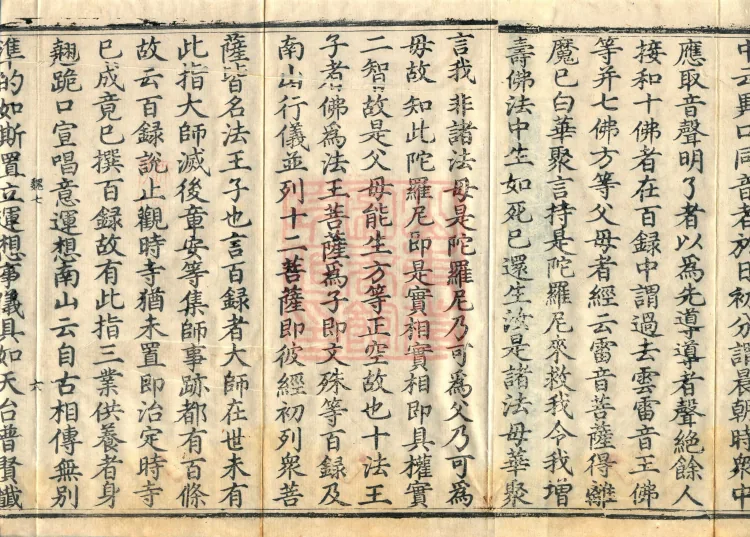 中云異口同音者於日初分謂晨朝時衆中
應取音聲明了者以爲先導導者聲絕餘人
接和十佛者在百録中謂過去雲雷音王佛
等并七佛方等父母者經云雷音菩薩得離
魔已白華聚言持是陀羅尼來救我令我增
壽佛法中生如死已還生汝是諸法母華聚
言我非諸法母是陀羅尼乃可爲父乃可爲
母故知此陀羅尼即是實相實相即具權實
二智故是父母能生方等正空故也十法王
子者佛爲法王菩薩爲子即文殊等百録及
南山行儀並列十二菩薩即彼經初列衆菩
薩皆名法王子也言百録者大師在世未有
此指大師滅後章安等集師事跡都有百條
故云百録說止觀時寺猶未置即治定時寺
已成竟已撰百録故有此指三業供養者身
翹跪口宣唱意運想南山云自古相傳無別
七
六
準的如斯置立運想事儀具如天台普賢懺